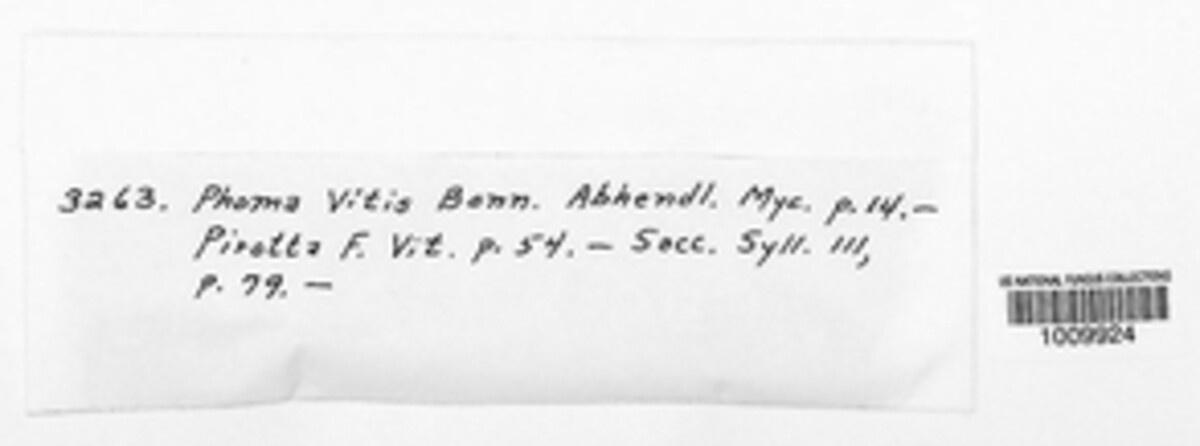 3263. Phoma Vitis Bonn. Abhendl. Myc. p. 14. —
Pirotta F. Vit. p. 54. — Sacc. Syll. III,
p. 79. —
US NATIONAL FUNGUS COLLECTIONS
1009924